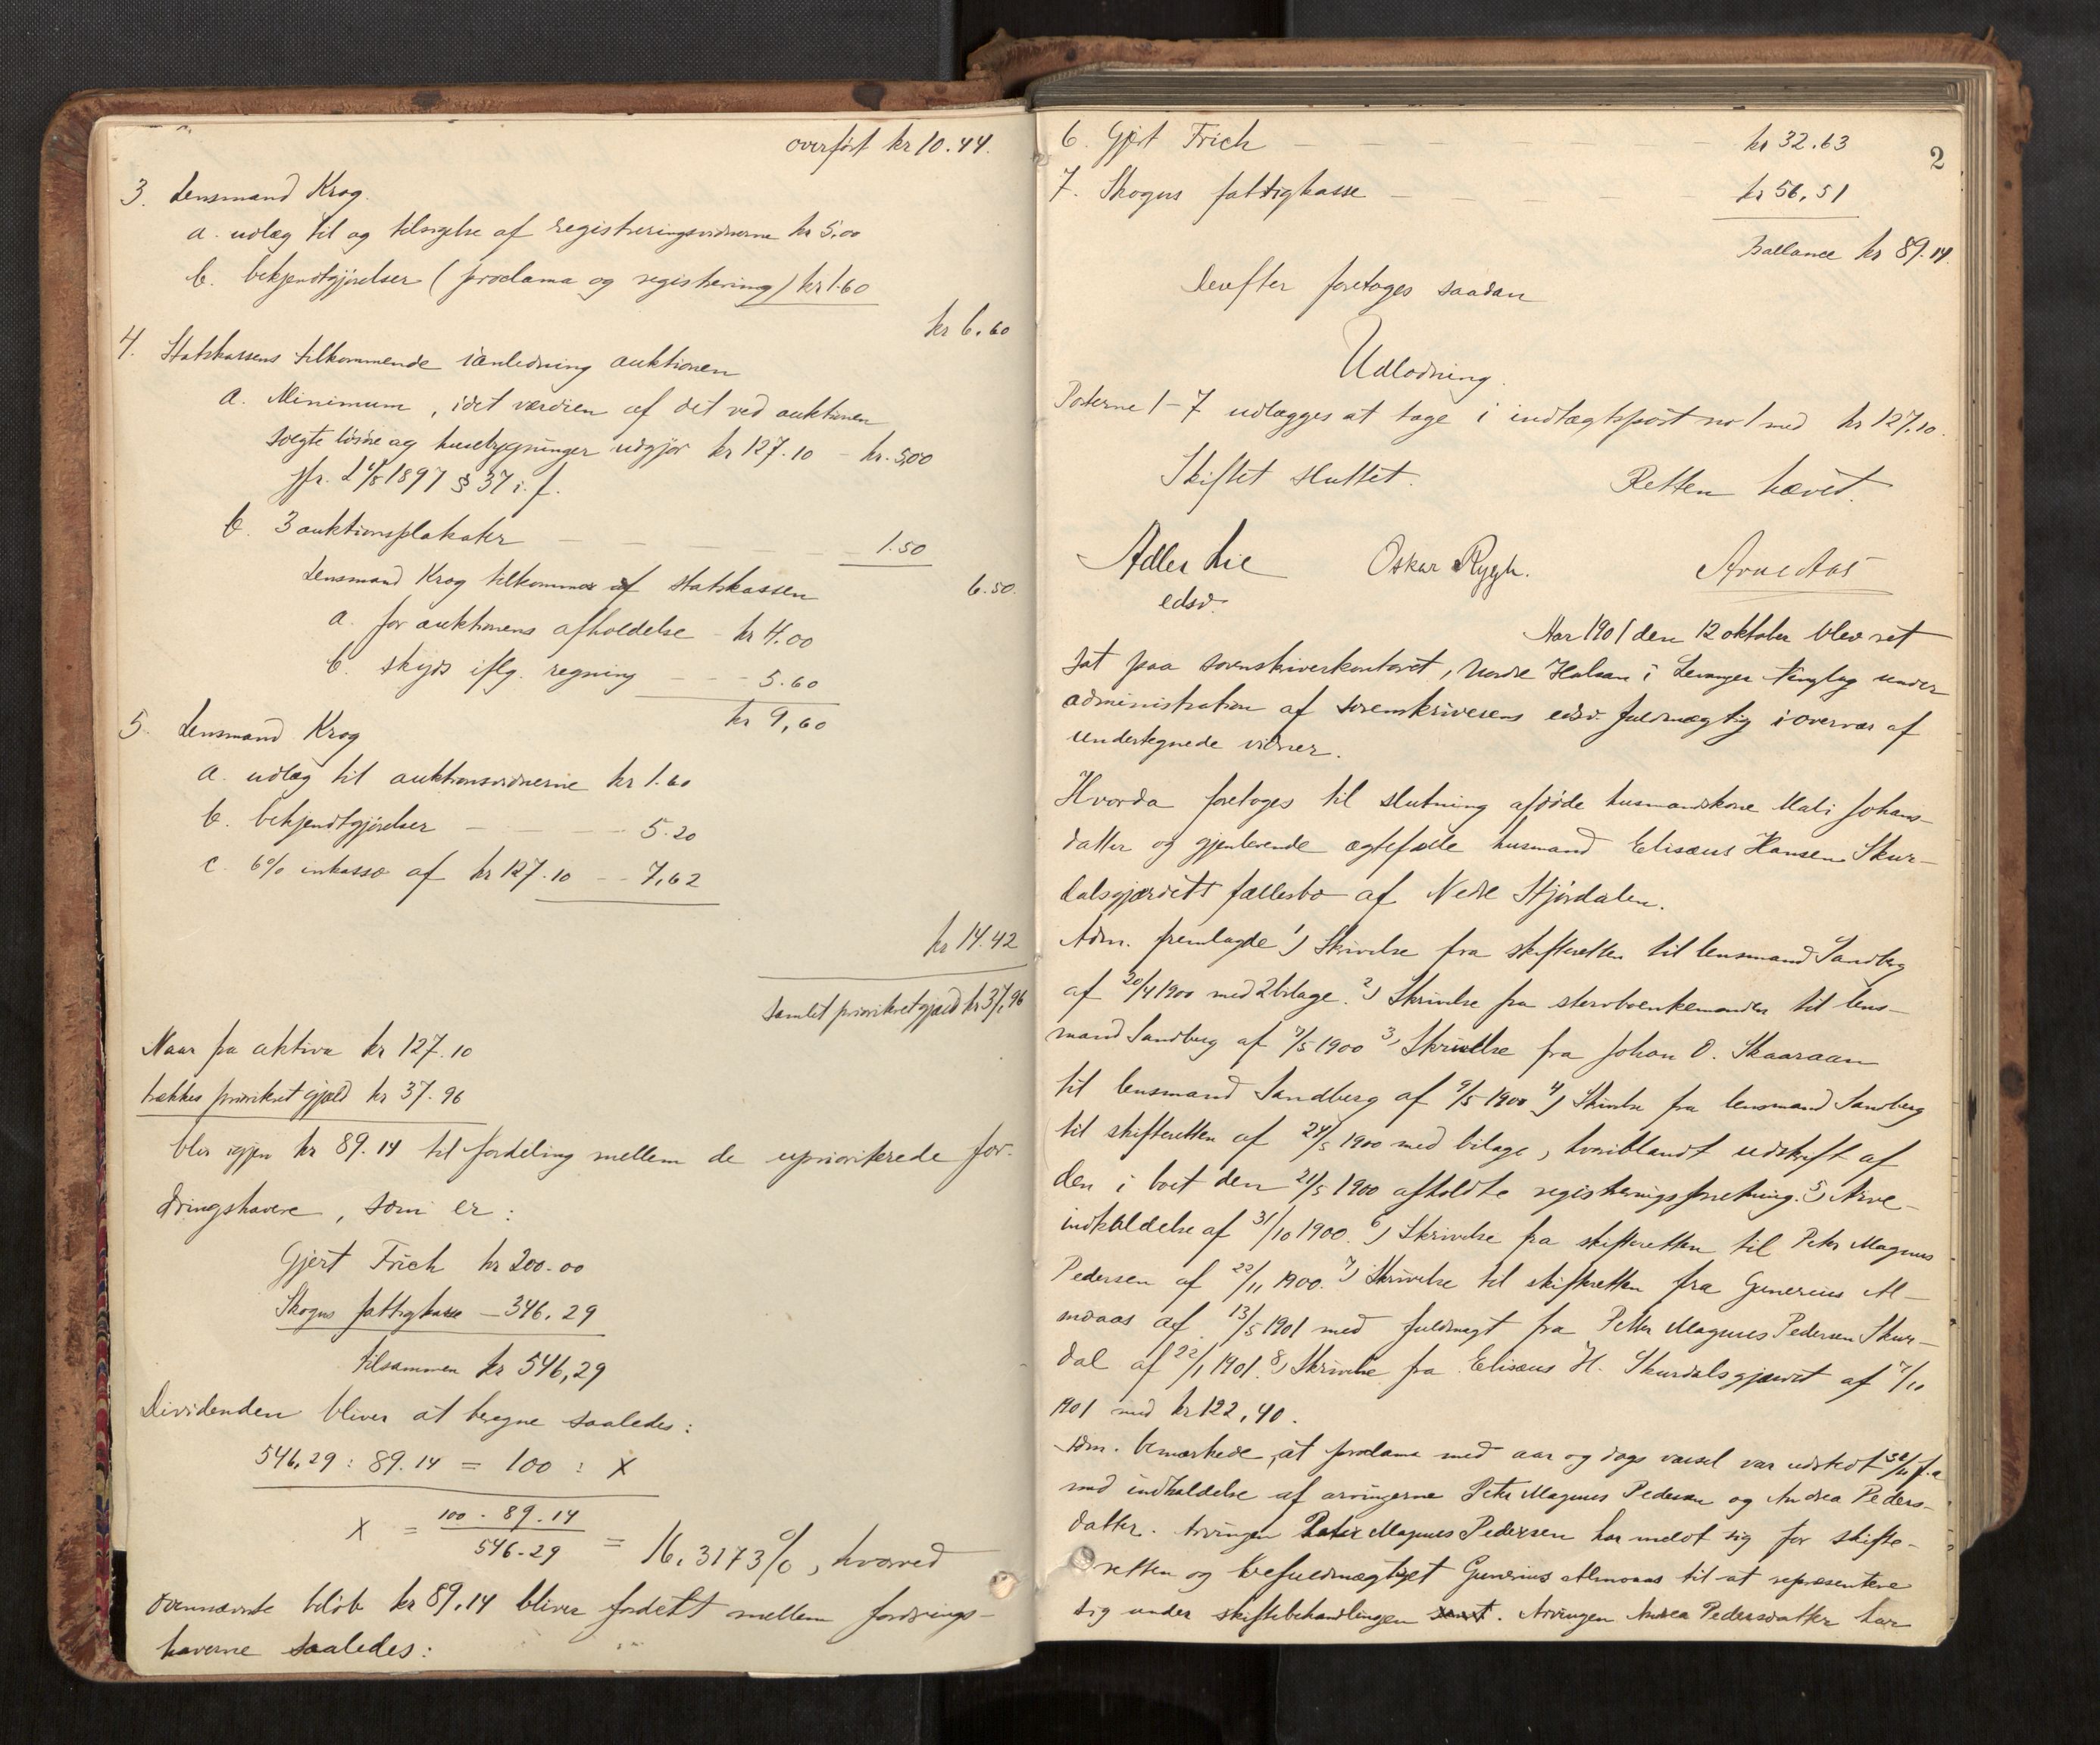 overført kr 10.44.
3. Lensmand Krog.
a. udlæg til og tilsigelse af registreringsvidnerne kr 5,00
b. bekjendtgjørelser (proclama og registrering) kr 1.60
kr 6.60
4. Statskassens tilkommende i anledning auktionen
a. Minimum, idet værdien af det ved auktionen
solgte løsøre og husebygninger udgjør kr 127.10 - kr. 5,00
jfr. L 1897 § 37 i. f.
b. 3 auktionsplakater — — — — — 1.50
6.50.
Lensmand Krog tilkommer af statskassen
a. for auktionens afholdelse - kr 4.00
b. skyds iflg. regning — - - 5.60
kr 9,60
5. Lensmand Krog
a. udlæg til auktionsvidnerne kr 1.60
b. bekjendtgjørelser — — — - 5.20
c. 6% inkasso af kr 127.10 - - 7,62
kr 14.42
Samlet prioriteret gjæld kr 37,96
Naar fra aktiva kr 127.10
trækkes prioritert gjæld kr 37.96
blir igjen kr 89.14 til fordeling mellem de uprioriterede for-
dringshavere, som er:
Gjert Frich kr 200.00
Skogns fattigkasse — 346.29
tilsammen kr 546,29
Dividenden bliver at beregne saaledes:
546,29 : 89.14 = 100 : X
X = 100 . 89.14 / 546.29 = 16,3173%, hvorved
ovennævnte beløb kr 89.14 bliver fordelt mellem fordrings-
haverne saaledes:
2
6. Gjert Frich — — — — — kr 32.63
7. Skogns fattigkasse — — — — kr 56,51
Ballance kr 89.14.
Derefter foretoges saadan
Udlodning.
Posterne 1-7 udlægges at tage i indtægtspost no 1 med kr 127.10.
Skiftet sluttet. Retten hævet.
Adler Lie Oskar Rygh. Arne Aas
edsv.
Aar 1901 den 12 oktober blev ret
sat paa sorenskriverkontoret, Nordre Halsan i Levanger tinglag under
administration af sorenskriverens edsv. fuldmægtig i overvær af
undertegnede vidner.
Hvorda foretoges til slutning afdøde husmandskone Mali Johans-
datter og gjenlevende ægtefælle husmand Elisæus Hansen Skur-
dalsgjærdets fællesbo af Nedre Stjørdalen.
Adm. fremlagde 1) Skrivelse fra skifteretten til lensmand Sandberg
af 20/4 1900 med 2 bilage. 2) Skrivelse fra stervboenkemanden til lens-
mand Sandberg af 7/5 1900 3) Skrivelse fra Johan O. Skaaraan
til lensmand Sandberg af 9/5 1900 4) Skrivelse fra lensmand Sandberg
til skifteretten af 24/5 1900 med bilage, hvoriblandt udskrift af
den i boet den 21/5 1900 afholdte registreringsforretning. 5) Arve-
indkaldelse af 31/10 1900. 6) Skrivelse fra skifteretten til Peter Magnus
Pedersen af 22/11 1900. 7) Skrivelse til skifteretten fra Gunerius Al-
moaas af 13/5 1901 med fuldmagt fra Petter Magnus Pedersen Skur-
dal af 22/1 1901. 8) Skrivelse fra Elisæus H. Skurdalsgjærdet af 7/10
1901 med kr 122,40.
Adm. bemærkede, at proclama med aar og dags varsel var udstedt f. a
med indkaldelse af arvingerne Peter Magnus Pedersen og Andrea Peders-
datter. Arvingen Peter Magnus Pedersen har meldt sig for skifte-
retten og befuldmægtiget Gunerius Almoaas til at repræsentere
sig under skiftebehandlingen. Arvingen Andrea Pedersdatter har